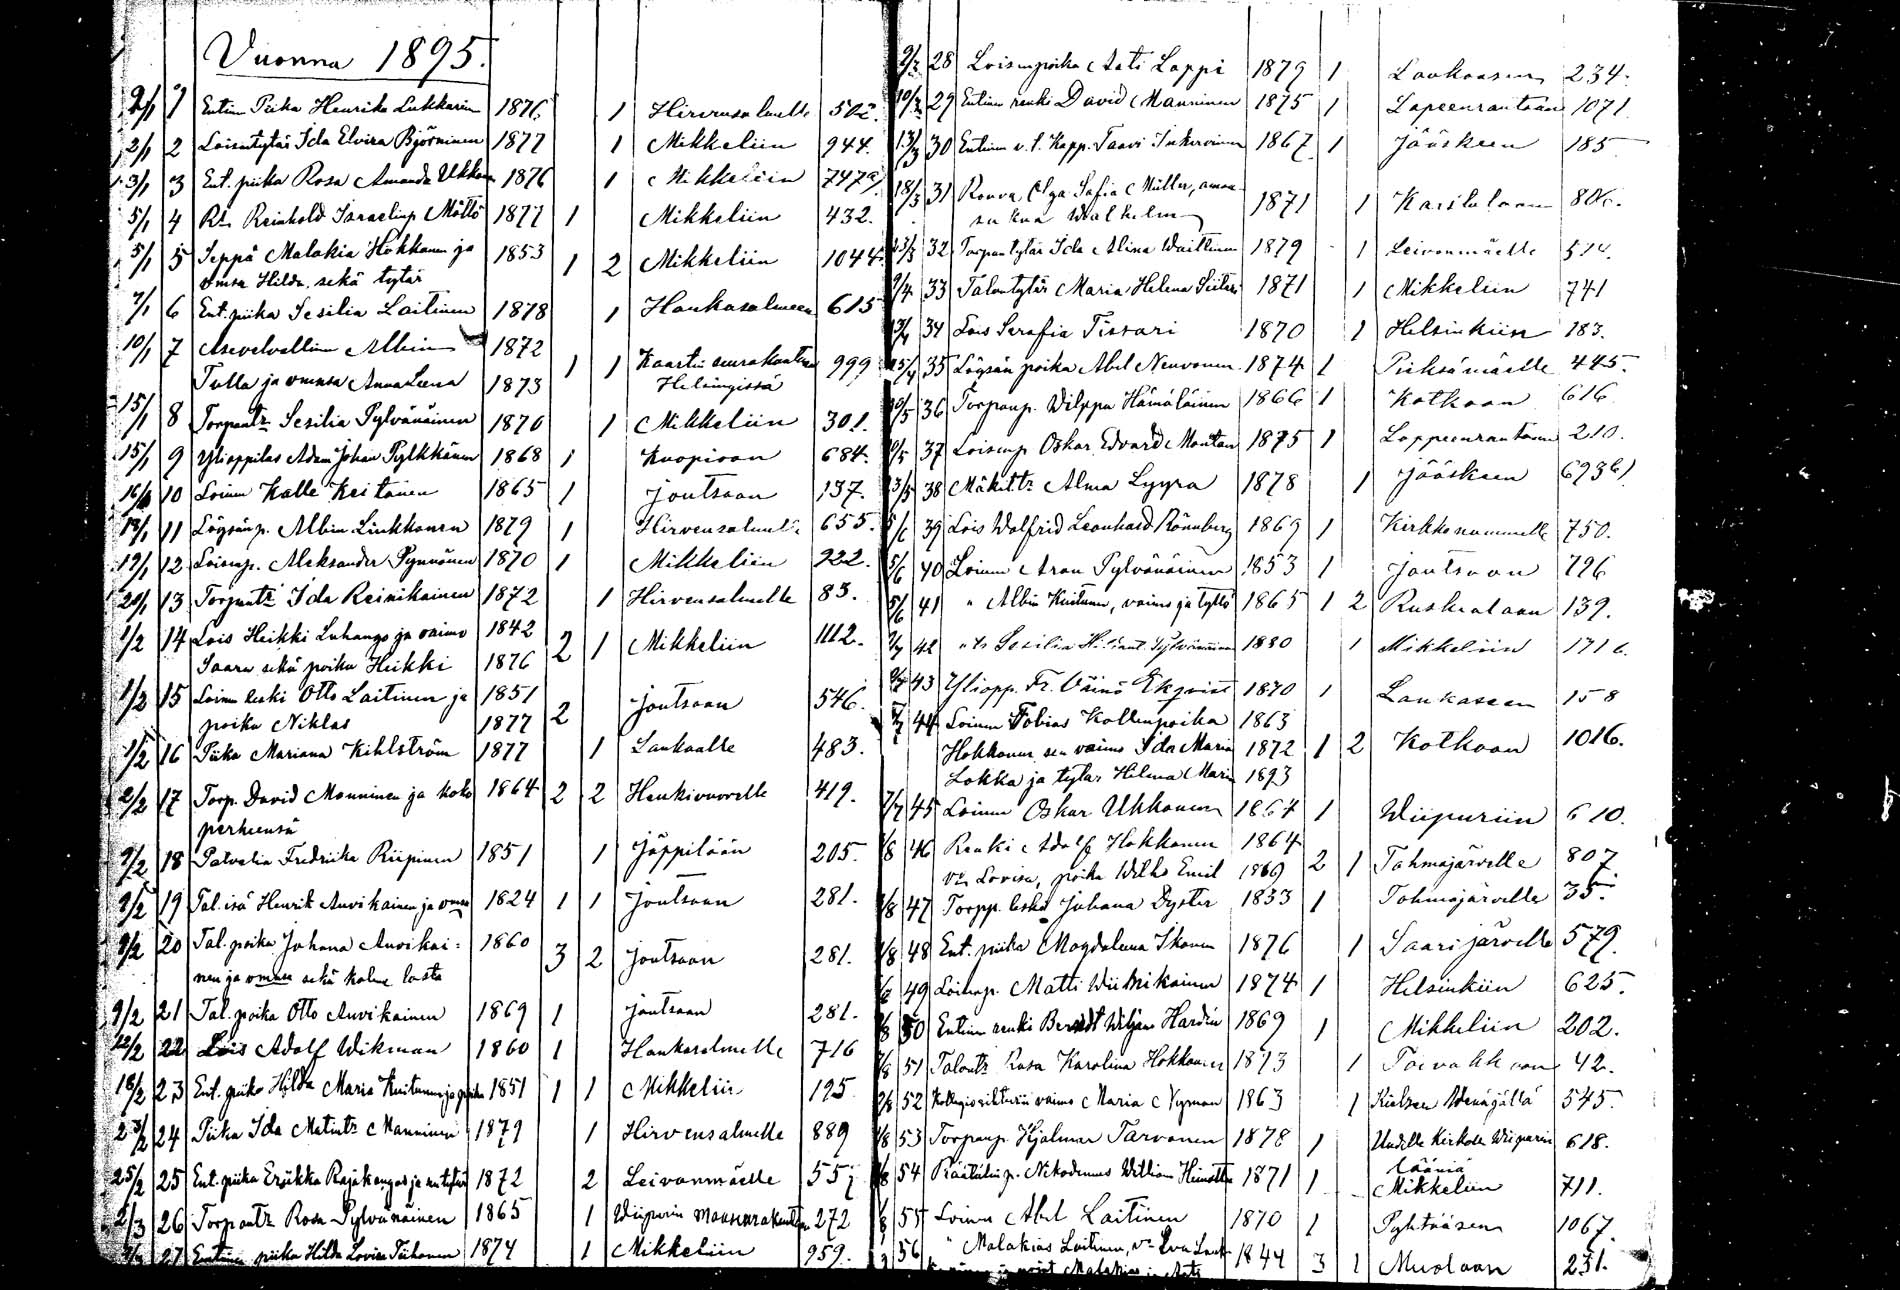 Vuonna 1895.
2/1 1 Entinen Piika Henrika Lukkarin 1876 1 Hirvensalmelle 502.
2/1 2 Loisentytär Ida Elvira Björninen 1877 1 Mikkeliin 944.
3/1 3 Ent. piika Rosa Amanda Ukkonen 1876 1 Mikkeliin 747a)
5/1 4 Rn Reinhold Israelinp. Möttö 1877 1 Mikkeliin 432.
5/1 5 Seppä Malakia Hokkanen ja 1853 1 2 Mikkeliin 1044.
vmsa Hilda sekä tytär
7/1 6 Ent. piika Sesilia Laitinen 1878 1 Hankasalmeen 615
10/1 7 Asevelvollinen Albin 1872 1 1 Kaartin seurakuntaan 999
Tulla ja vmnsa Anna Leena 1873 Helsingissä
15/1 8 Torpantr Sesilia Pylvänäinen 1870 1 Mikkeliin 301.
15/1 9 Ylioppilas Adam Johan Pylkkänen 1868 1 Kuopioon 684.
16/1 10 Loinen Kalle Keitänen 1865 1 Joutsaan 137.
18/1 11 Lögsänp. Albin Linkkonen 1879 1 Hirvensalmelle 655.
19/1 12 Loisenp. Aleksander Pynnönen 1870 1 Mikkeliin 222.
20/1 13 Torpantr Ida Reinikainen 1872 1 Hirvensalmelle 83.
1/2 14 Lois Heikki Luhango ja vaimo 1842 2 1 Mikkeliin 1112.
Saara sekä poika Heikki 1876
1/2 15 Loinen leski Otto Laitinen ja 1851 2 Joutsaan 546.
poika Niklas 1877
1/2 16 Piika Mariana Kihlström 1877 1 Laukaalle 483.
2/2 17 Torp. David Manninen ja koko 1864 2 2 Haukivuorelle 419.
perheensä
9/2 18 Palvelia Fredrika Riipinen 1851 1 Jäppilään 205.
9/2 19 Tal. isä Henrik Auvikainen ja vmsa 1824 1 1 Joutsaan 281.
9/2 20 Tal. poika Juhana Auvikai= 1860 3 2 Joutsaan 281.
nen ja vmnsa sekä kolme lasta
9/2 21 Tal. poika Otto Auvikainen 1869 1 Joutsaan 281.
12/2 22 Lois Adolf Wikman 1860 1 Hankasalmelle 716
18/2 23 Ent. piika Hilda Maria Kuitunen ja poika 1851 1 1 Mikkeliin 195
23/2 24 Piika Ida Matintr Manninen 1879 1 Hirvensalmelle 889
25/2 25 Ent. piika Erikka Rajakangas ja sen tytär 1872 2 Leivonmäelle 557
2/3 26 Torpantr Rosa Pylvänäinen 1865 1 Wiipurin maaseurakuntaan 272
27 Entinen piika Hilda Lovisa Tiihonen 1874 1 Mikkeliin 959.
9/3 28 Loisenpoika Aati Lappi 1879 1 Laukaaseen 234.
10/3 29 Entinen renki David Manninen 1875 1 Lapeenrantaan 1071.
13/3 30 Entinen v.t. Kapp. Taavi Inkervinen 1867 1 Jääskeen 185
18/3 31 Rouva Olga Sofia Müller, omaa 1871 1 Karilulaan 806.
sukua Walhelm
23/3 32 Torpantytär Ida Alina Waittinen 1879 1 Leivonmäelle 514.
9/4 33 Talontytär Maria Helena Siiteri 1871 1 Mikkeliin 741
13/4 34 Lois Serafia Tissari 1870 1 Helsinkiin 183.
25/4 35 Lögsän poika Abel Neuvonen 1874 1 Pieksämäelle 445.
36 Torpanp. Wilppu Hämäläinen 1866 1 Kotkaan 616
37 Loisenp Oskar Edvard Montan 1875 1 Lappeenrantaan 210.
13/5 38 Mäkittr Alma Lyyra 1878 1 Jääskeen 693b)
5/6 39 Lois Wolfrid Leonhard Rönnberg 1869 1 Kirkkonummelle 750.
5/6 40 Loinen Aron Pylvänäinen 1853 1 Joutsaan 796
5/6 41 " Albin Kuitunen, vaimo ja tyttö 1865 1 2 Ruskealaan 139.
42 Sesilia Pylvänäinen 1880 1 Mikkeliin 171
43 Yliopp. Fr. Väinö Ekqvist 1870 1 Laukaseen 158
44 Loinen Tobias Kallenpoika 1863
Hokkanen sen vaimo Ida Maria 1872 1 2 Kotkaan 1016.
Lokka ja tytär Hilma Maria 1893
7/7 45 Loinen Oskar Ukkonen 1864 1 Wiipuriin 610.
46 Renki Adolf Hokkanen 1864 2 1 Tohmajärvelle 807
vo Lovisa, poika Wilho Emil 1869
47 Torpp. leski Juhana Dyster 1833 1 Tohmajärvelle 35.
48 Ent. piika Magdaleena Ikonen 1876 1 Saarijärvelle 579.
49 Loisenp. Matti Wiitikainen 1874 1 Helsinkiin 625.
50 Entinen renki Berndt Wiljam Hardin 1869 1 Mikkeliin 202.
51 Talontr Rosa Karolina Hokkanen 1873 1 Toivakkaan 42.
52 Kollegiosihteerin vaimo Maria Nyman 1863 1 Kielseen Wenäjällä 545.
53 Torpanp Hjalmar Tarvonen 1878 1 Uudelle Kirkolle Wiipurin 618.
lääniä
54 Räätälinp. Nikodemus William Heinonen 1871 1 Mikkeliin 711.
55 Loinen Abel Laitinen 1870 1 Pyhtääseen 1067.
56 " Malakias Laitinen, vo Eva 1844 3 1 Muolaan 231.